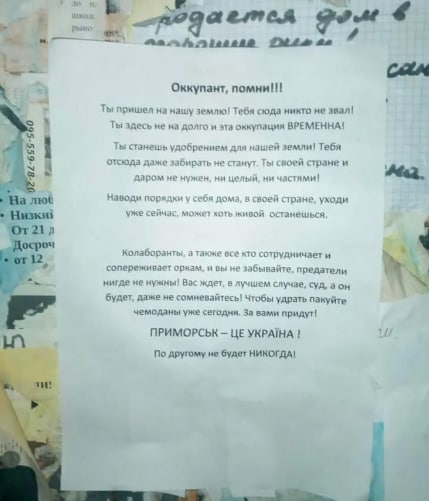 родается дом в
095-559-78-20
На люб
Низкий
От 21 д
Досроч
от 12
Оккупант, помни!!!
Ты пришел на нашу землю! Тебя сюда никто не звал!
Ты здесь не на долго и эта оккупация ВРЕМЕННА!
Ты станешь удобрением для нашей земли! Тебя
отсюда даже забирать не станут. Ты своей стране и
даром не нужен, ни целый, ни частями!
Наводи порядки у себя дома, в своей стране, уходи
уже сейчас, может хоть живой останешься.
Колаборанты, а также все кто сотрудничает и
сопереживает оркам, и вы не забывайте, предатели
нигде не нужны! Вас ждет, в лучшем случае, суд, а он
будет, даже не сомневайтесь! Чтобы удрать пакуйте
чемоданы уже сегодня. За вами придут!
ПРИМОРСЬК – ЦЕ УКРАЇНА !
По другому не будет НИКОГДА!